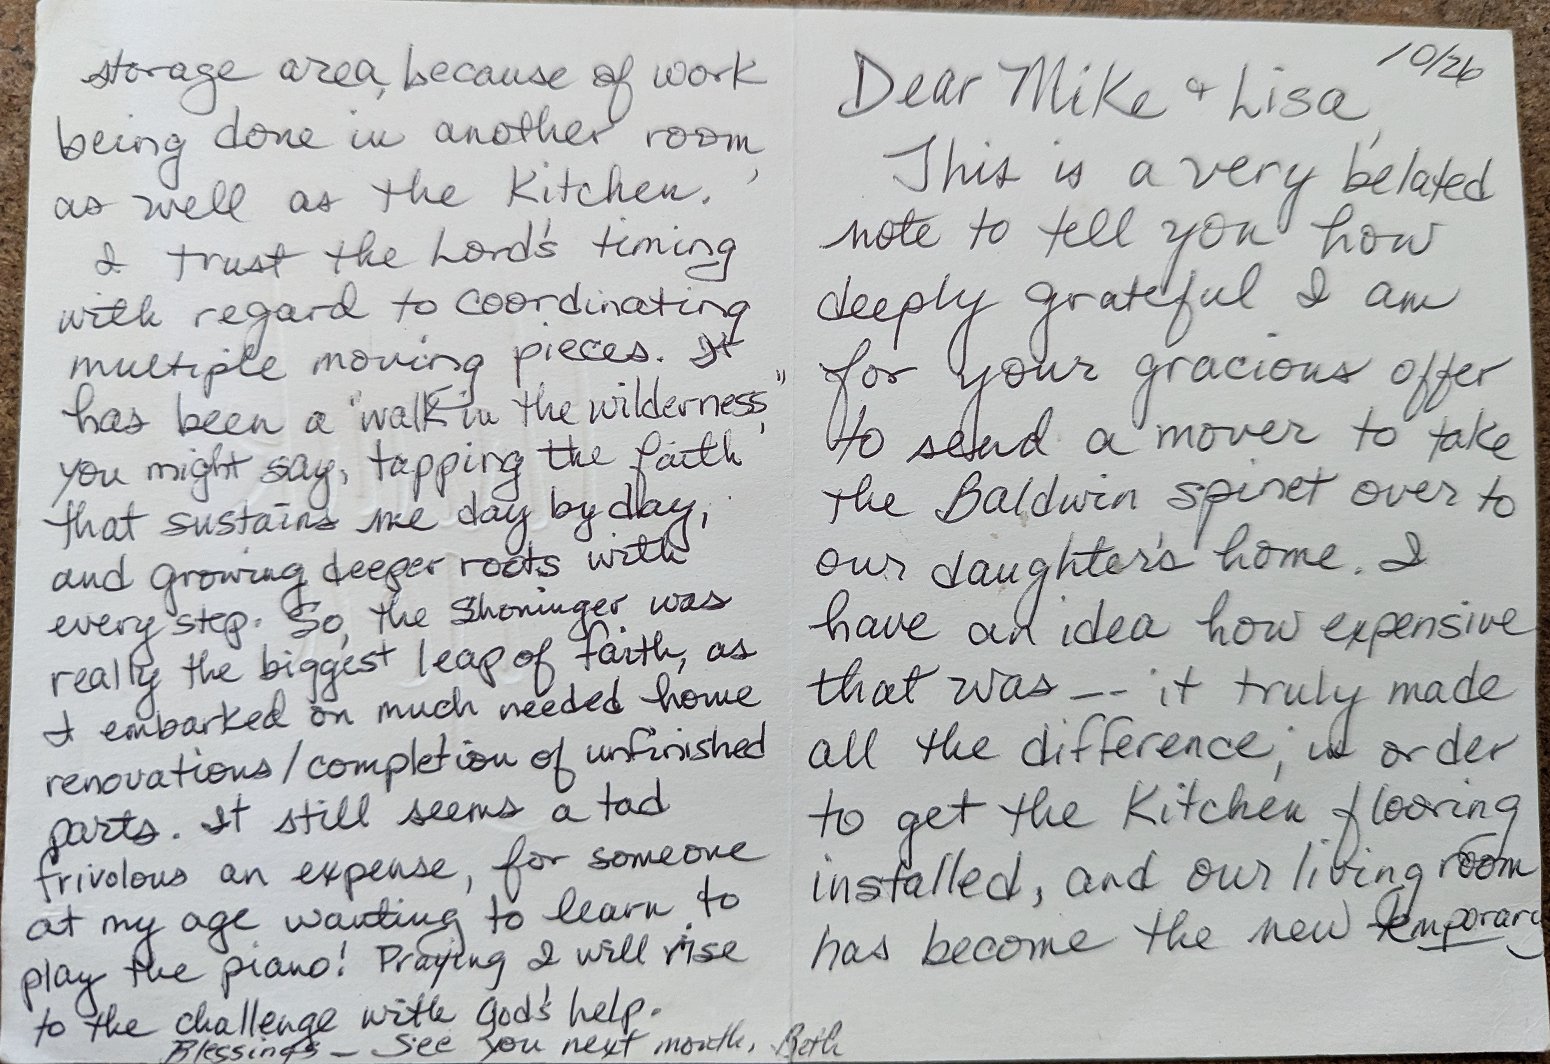 10/26
Dear Mike & Lisa,
This is a very belated
note to tell you how
deeply grateful I am
for your gracious offer
to send a mover to take
the Baldwin spinet over to
our daughter's home. I
have an idea how expensive
that was -- it truly made
all the difference, in order
to get the kitchen flooring
installed, and our living room
has become the new temporary
storage area, because of work
being done in another room,
as well as the kitchen.
I trust the Lord's timing
with regard to coordinating
multiple moving pieces. It
has been a "walk in the wilderness,"
you might say, tapping the faith
that sustains me day by day,
and growing deeper roots with
every step. So, the Shoninger was
really the biggest leap of faith, as
I embarked on much needed home
renovations/completion of unfinished
parts. It still seems a tad
frivolous an expense, for someone
at my age wanting to learn to
play the piano! Praying I will rise
to the challenge with God's help.
Blessings - See you next month, Beth